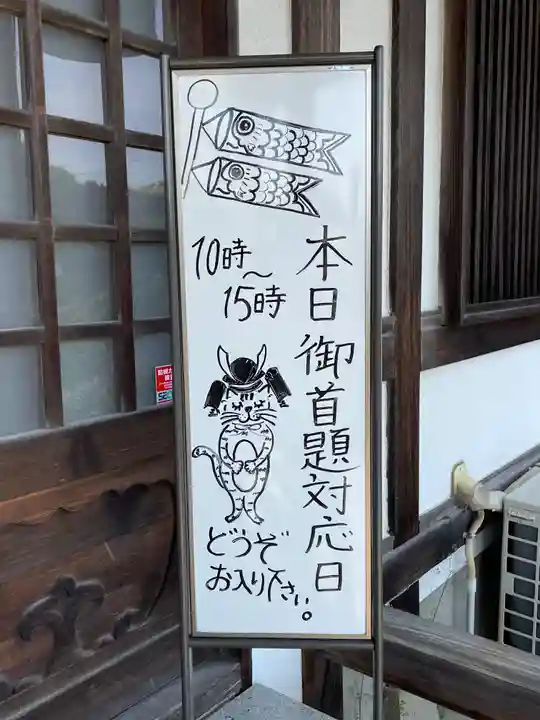 本日御首題対応日
10時～
15時
どうぞ
お入り下さい。